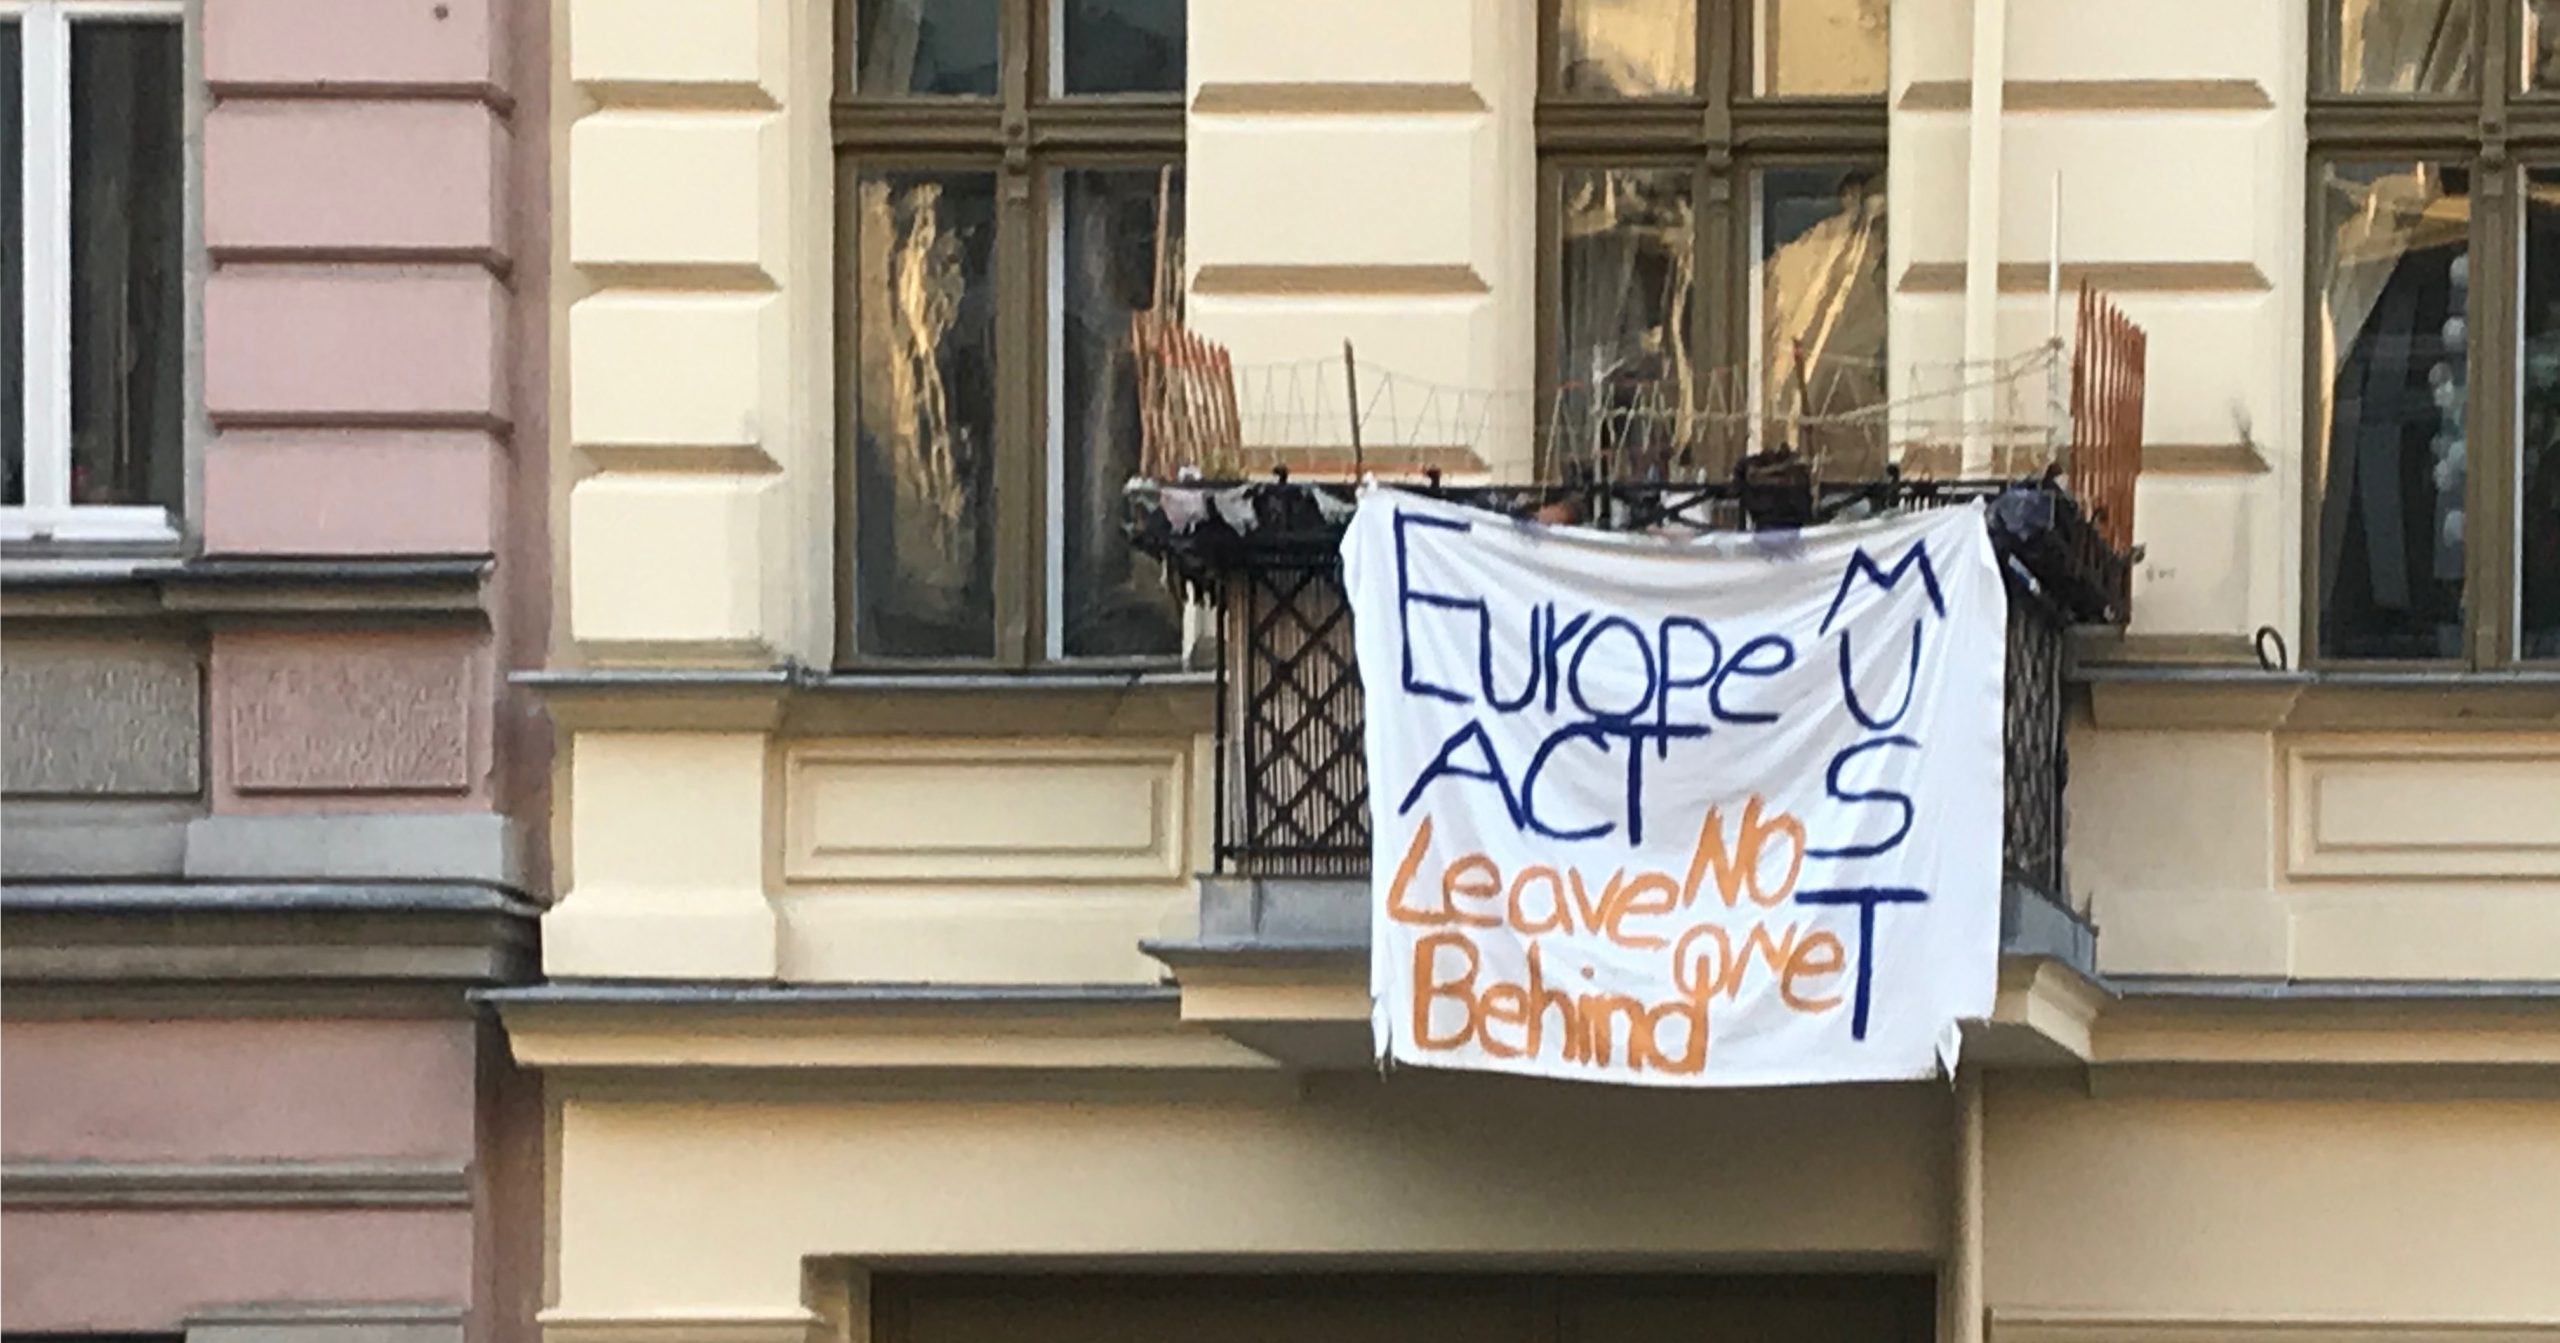 Europe MUST
ACT
Leave NO
ONe
Behind